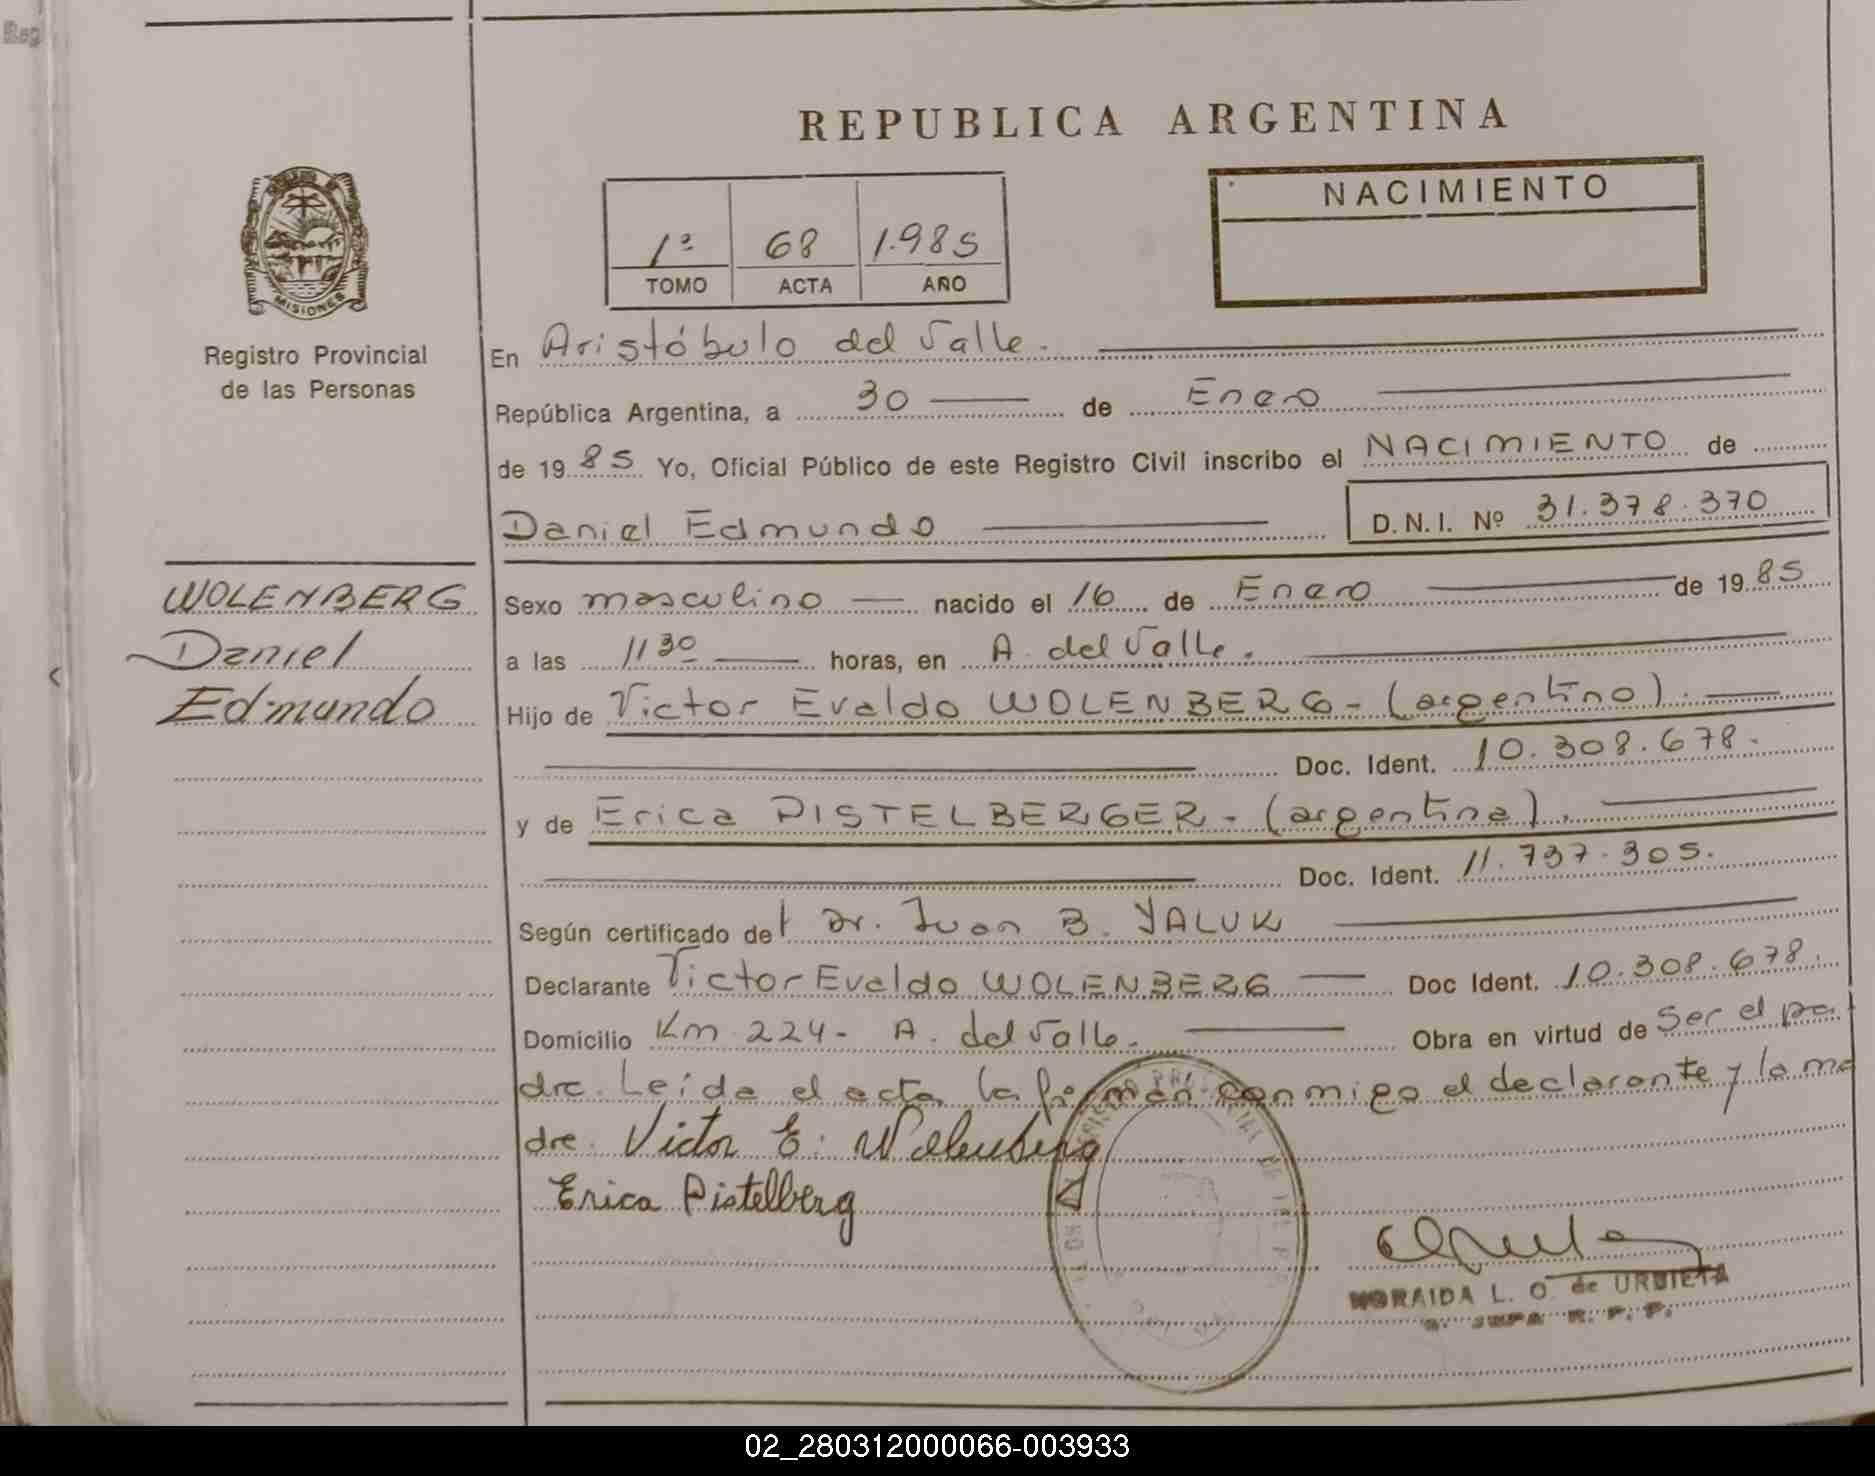 REPUBLICA ARGENTINA
1º 68 1.985
TOMO ACTA AÑO
NACIMIENTO
MISIONES
Registro Provincial
de las Personas
WOLENBERG
Daniel
Edmundo
En Aristóbulo del Valle.
República Argentina, a 30 de Enero
de 19 85 Yo, Oficial Público de este Registro Civil inscribo el NACIMIENTO de
Daniel Edmundo D.N.I. Nº 31.378.370
Sexo masculino nacido el 16 de Enero de 19 85
a las 11 30 horas, en A. del Valle.
Hijo de Victor Evaldo WOLENBERG - (argentino).
Doc. Ident. 10.308.678.
y de Erica PISTELBERGER - (argentina).
Doc. Ident. 11.737.305.
Según certificado del Dr. Juan B. YALUK
Declarante Victor Evaldo WOLENBERG Doc Ident. 10.308.678.
Domicilio Km 224 - A. del Valle. Obra en virtud de Ser el pa-
dre. Leída el acta la firman conmigo el declarante y la ma
dre. Victor E. Wolenberg
Erica Pistelberg
NORAIDA L. O. de URBIETA
JEFA R. P. P.
02_280312000066-003933